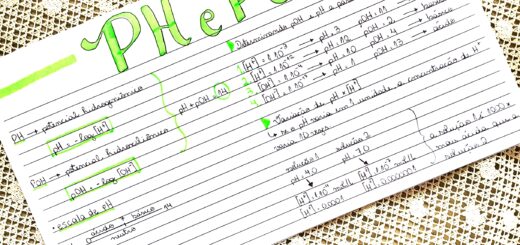 PH e P
PH → potencial hidrogeniônico
pH = -log [H⁺]
POH → potencial hidroxiliônico
pOH = -log [OH⁻]
• escala de pH
ácido 7 básico 14
neutro
pH + pOH = 14
Determinando pOH e pH a
1 [H⁺] = 1.10⁻³ → pH = 3 pOH = 11 → ácido
2 [H⁺] = 1.10⁻¹² → pH = 12 pOH = 2 → básico
3 [OH⁻] = 1.10⁻⁴ → pH = 10 pOH = 4 → básico
4 [OH⁻] = 1.10⁻¹³ → pH = 1 pOH = 13 → ácido
Variação de pH × [H⁺]
↳ se a pH varia em 1 unidade, a concentração de H⁺
varia 10 vezes.
solução 1 solução 2
pH = 4,0 pH 7,0
[H⁺] mol/L [H⁺] mol/L
[H⁺] 0,0001 [H⁺] 0,0000001
a solução 1 é 1000x
mais ácida que a
solução 2